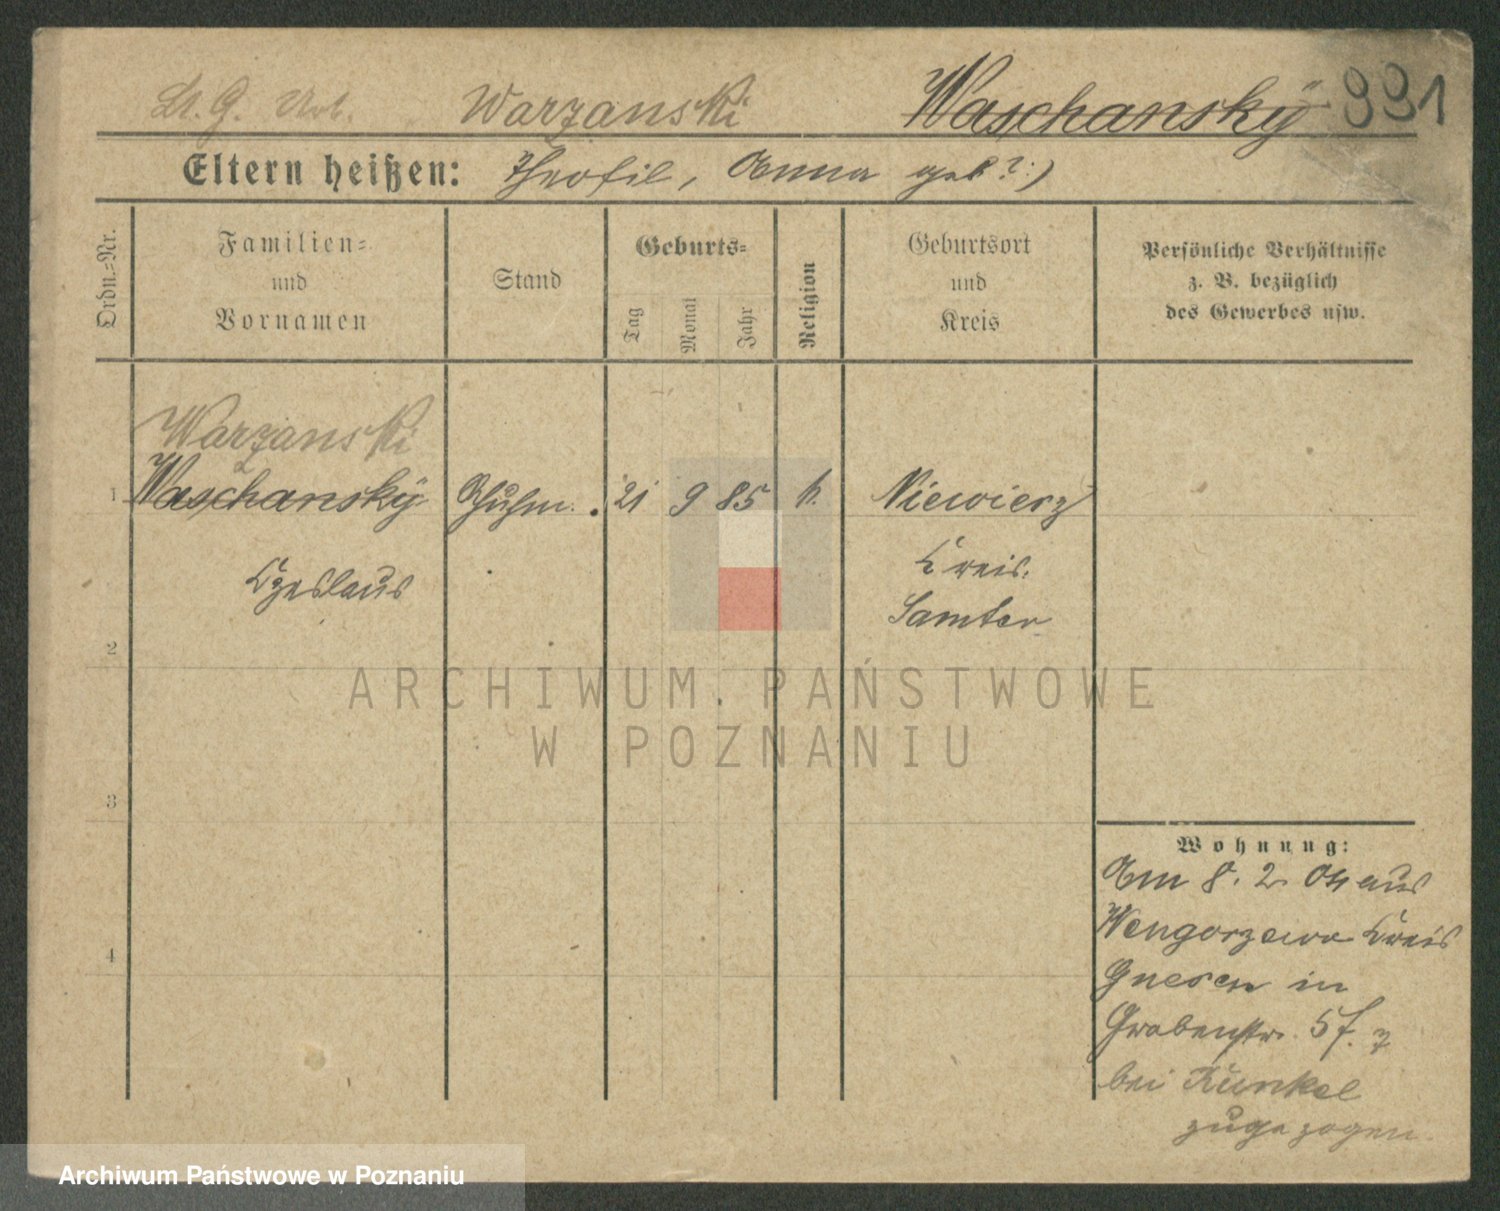 Warzanski Waschansky 991
Eltern heißen: Theofil, Anna geb ?.)
Ordn.=Nr.
Familien=
und
Vornamen
Stand
Geburts=
Tag
Monat
Jahr
Religion
Geburtsort
und
Kreis
Persönliche Verhältnisse
z. B. bezüglich
des Gewerbes usw.
Warzanski
1 Waschansky Schuhm. 21 9 85 k. Niewierz
Czeslaus Kreis.
Samter
2
3
4
Wohnung:
Am 8. 2. 04 aus
Wengorzewo Kreis
Gnesen in
Grabenstr. 5
bei Kunkel
zugezogen
ARCHIWUM PAŃSTWOWE
W POZNANIU
Archiwum Państwowe w Poznaniu